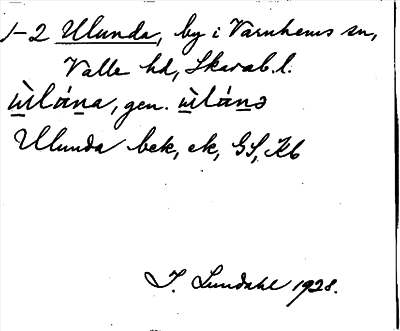 1-2 Ulunda, by i Varnhems sn,
Valle hd, Skarab. l.
ùlána, gen. ùlánə
Ulunda bek, ek, GS, Kb
I. Lundahl 1928.